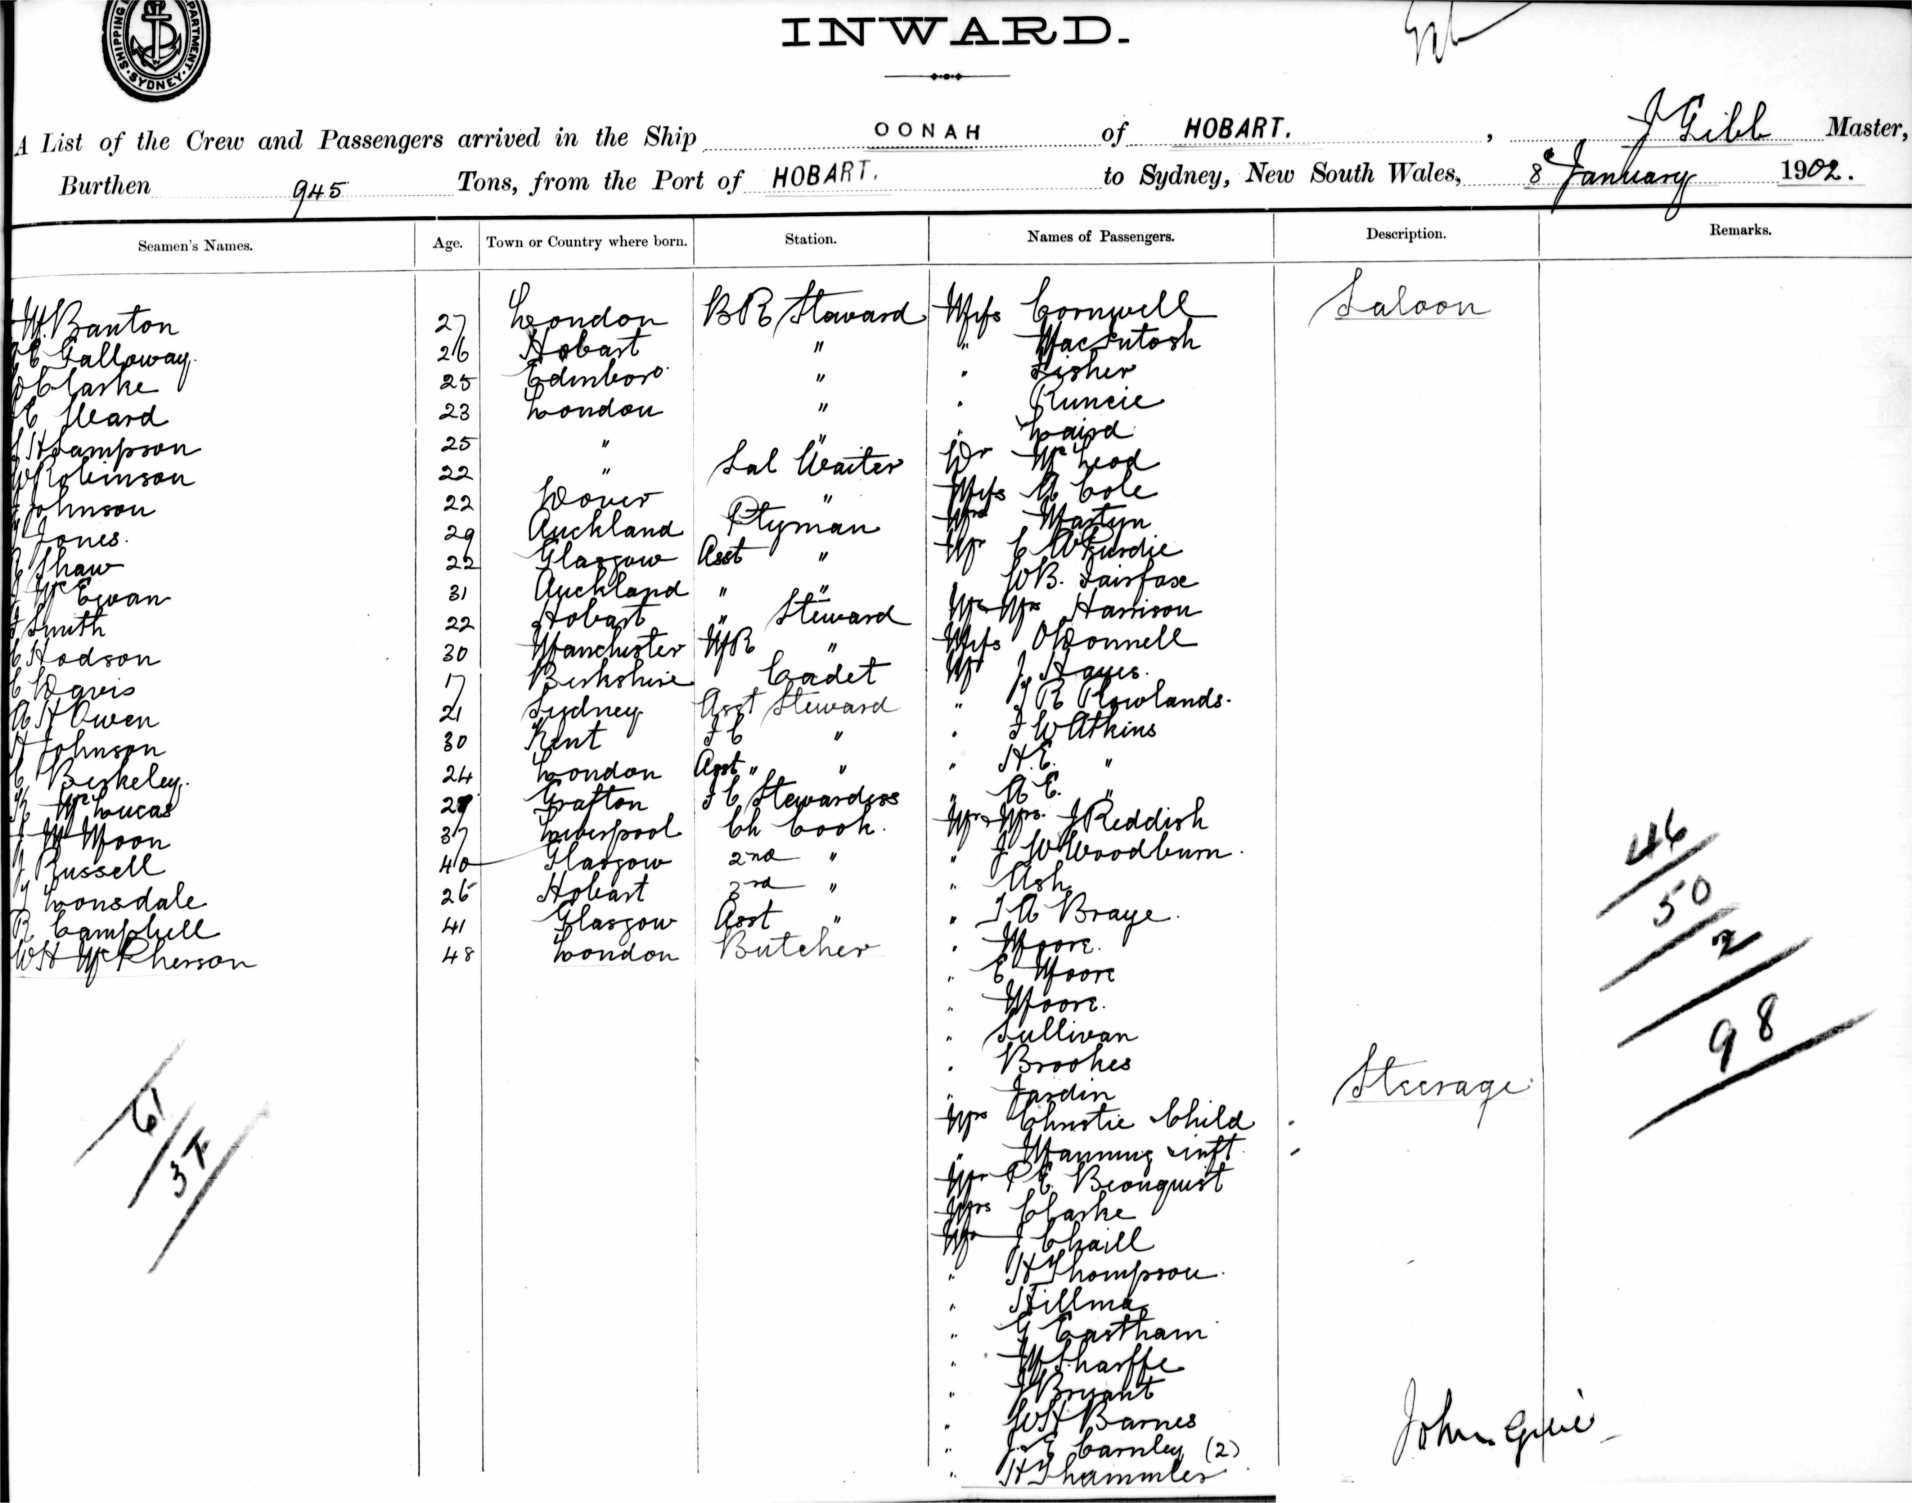 SHIPPING DEPARTMENT
SYDNEY
INWARD.
A List of the Crew and Passengers arrived in the Ship OONAH of HOBART. , J Gibb Master,
Burthen 945 Tons, from the Port of HOBART. to Sydney, New South Wales, 8 January 1902.
Seamen's Names. Age. Town or Country where born. Station. Names of Passengers. Description. Remarks.
W. Banton 27 London BR Steward Miss Cornwell Saloon
E Galloway. 26 Hobart " " MacIntosh
Clarke 25 Edinboro " " Fisher
E Ward 23 London " " Runcie
H Sampson 25 " " " Laird
W Robinson 22 " Sal Waiter Dr McLeod
Johnson 22 Dover " Miss A Cole
Jones. 29 Auckland Ptyman Mrs Martyn
Shaw 22 Glasgow Asst " Mr C A Purdie
McEwan 31 Auckland " " W B. Fairfax
Smith 22 Hobart " Steward Mr Mrs Harrison
C Hodson 30 Manchester MR " Miss O'Donnell
C Davis 17 Berkshire Cadet Mr J Hayes.
A H Owen 21 Sydney Asst Steward " J R Rowlands.
H Johnson 30 Kent F C " " F W Atkins
C Berkeley. 24 London Asst " " " H. E. "
McLucas 27 Grafton F C Stewardess " A E. "
J W Moon 37 Liverpool Ch Cook. Mr & Mrs. J Reddish
J Russell 40 Glasgow 2nd " " J W Woodburn.
J Lonsdale 26 Hobart 3rd " " Ash
R Campbell 41 Glasgow Asst " " J A Braye.
W H McPherson 48 London Butcher " Moore.
" E Moore
" Moore.
" Sullivan
" Brookes
" Jardin Steerage
Mrs Christie Child
" Manning inft
Mr P E. Bronquist
Mrs Clarke
Mr J Chaill
" H Thompson.
" Hillma
" G Eastham
" W Sharffe
" J Bryant
" W H Barnes
" Carnley (2)
" H Thammler
46
50
2
98
61
37
John Gibb